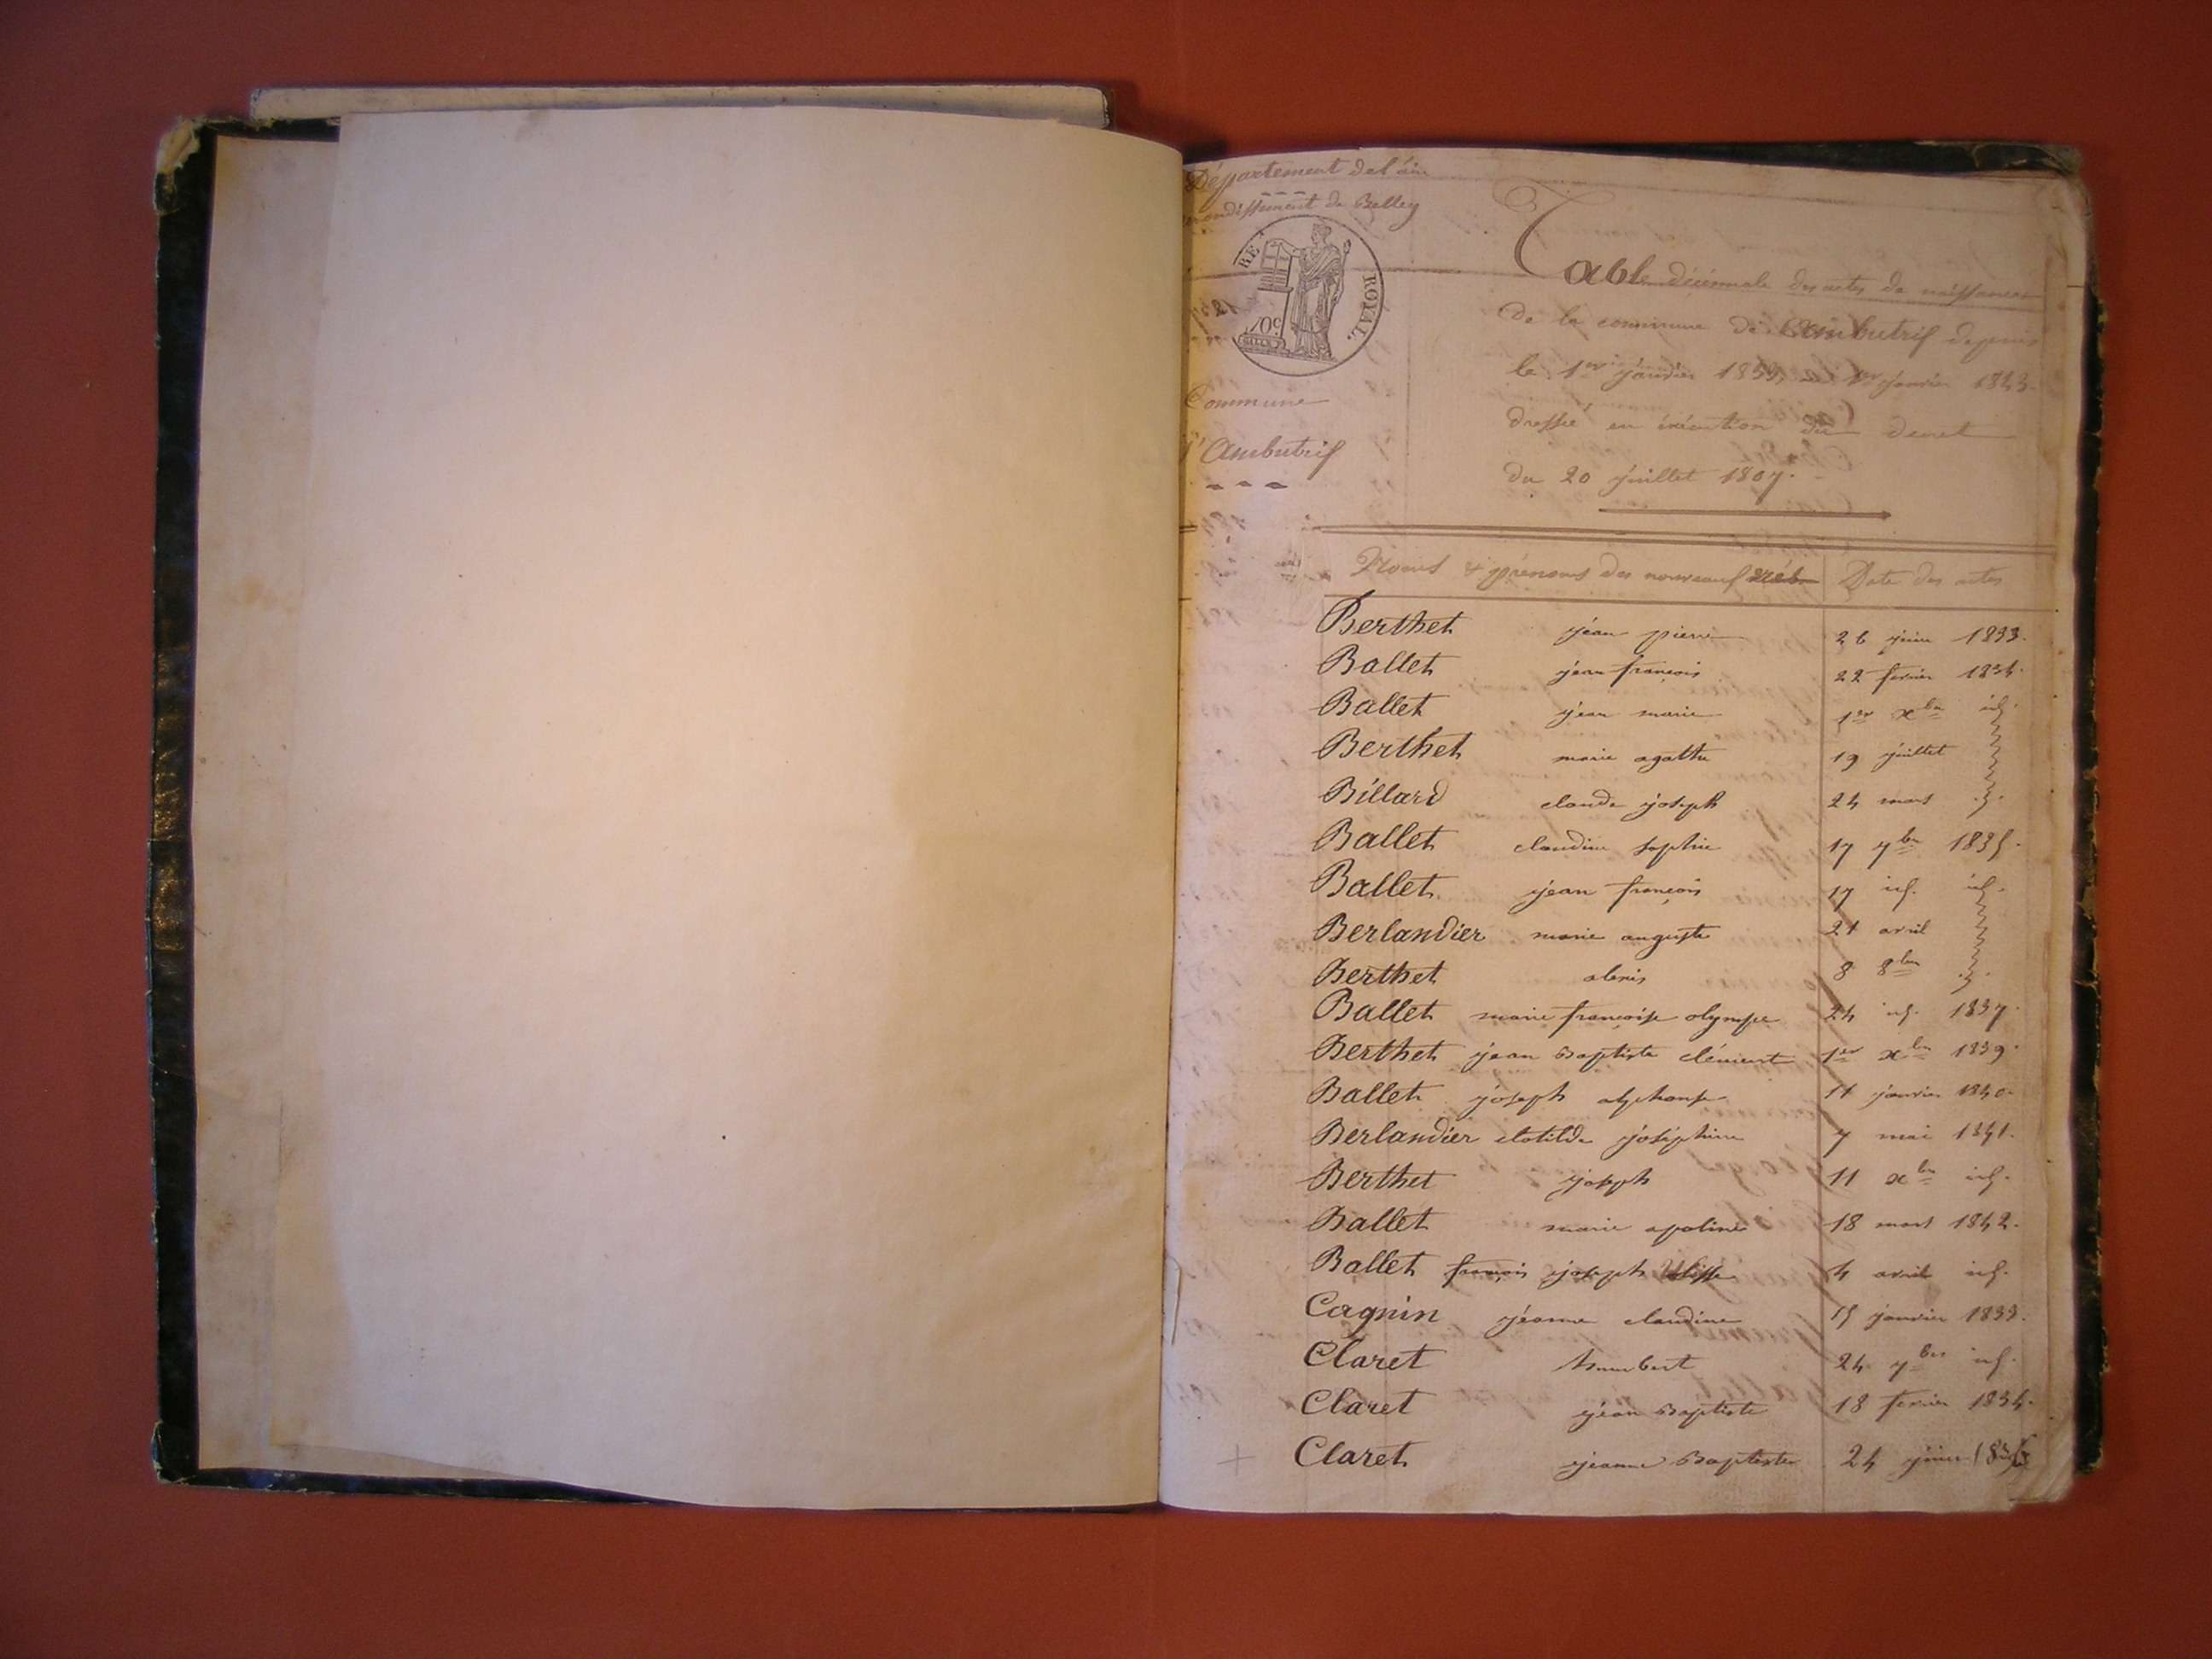 Département de l'ain
arrondissement de Belley
RE
ROYAL.
Commune
d'Ambutrif
Table décénnale des actes de naissances
De la commune de Ambutrif depuis
le 1er janvier 1833, au 1er janvier 1843.
dressée en éxécution du decret
du 20 juillet 1807.
Noms & prénoms des nouveaux nés Date des actes
Berthet jean pierre 26 juin 1833.
Ballet jean françois 22 fevrier 1834.
Ballet jean marie 1er xbre id.
Berthet marie agathe 19 juillet
Billard claude joseph 24 mars
Ballet claudine sophie 17 7bre 1835.
Ballet jean françois 17 id. id.
Berlandier marie auguste 21 avril
Berthet alexis 8 8bre
Ballet marie françoise olympe 24 id. 1837.
Berthet jean Baptiste clément 1er xbre 1839.
Ballet joseph alphonse 11 janvier 1840.
Berlandier clotilde joséphine 7 mai 1841.
Berthet joseph 11 xbre id.
Ballet marie apoline 18 mars 1842.
Ballet françois joseph Ulisse 4 avril id.
Cagnin jéanne claudine 15 janvier 1833.
Claret humbert 24 7bre id.
Claret jean Baptiste 18 fevrier 1834.
+ Claret jeanne Baptiste 24 juin